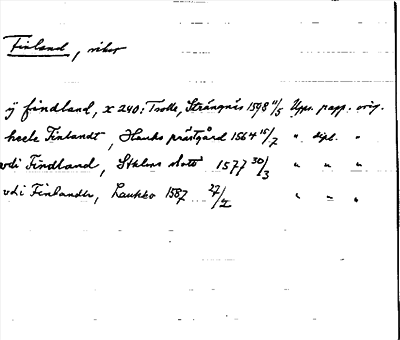 Finland, riket
ÿ findland, x 240: Trolle, Strängnäs 1598 11/5 Upps. papp. orig.
heele Finlandt, Hauho prästgård 1564 15/7 " dipl. "
vdi Findland, Sthlms slott 1577 30/3 " " "
vdi Finlandh, Laukko 1587 27/2 " " "